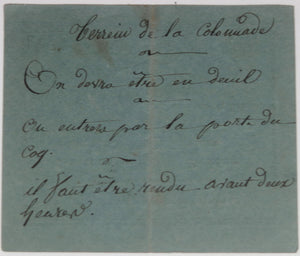 Terrein de la Colonnade
On devra être en deuil
On entrera par la porte du
coq.
il faut être rendu avant deux
heures.